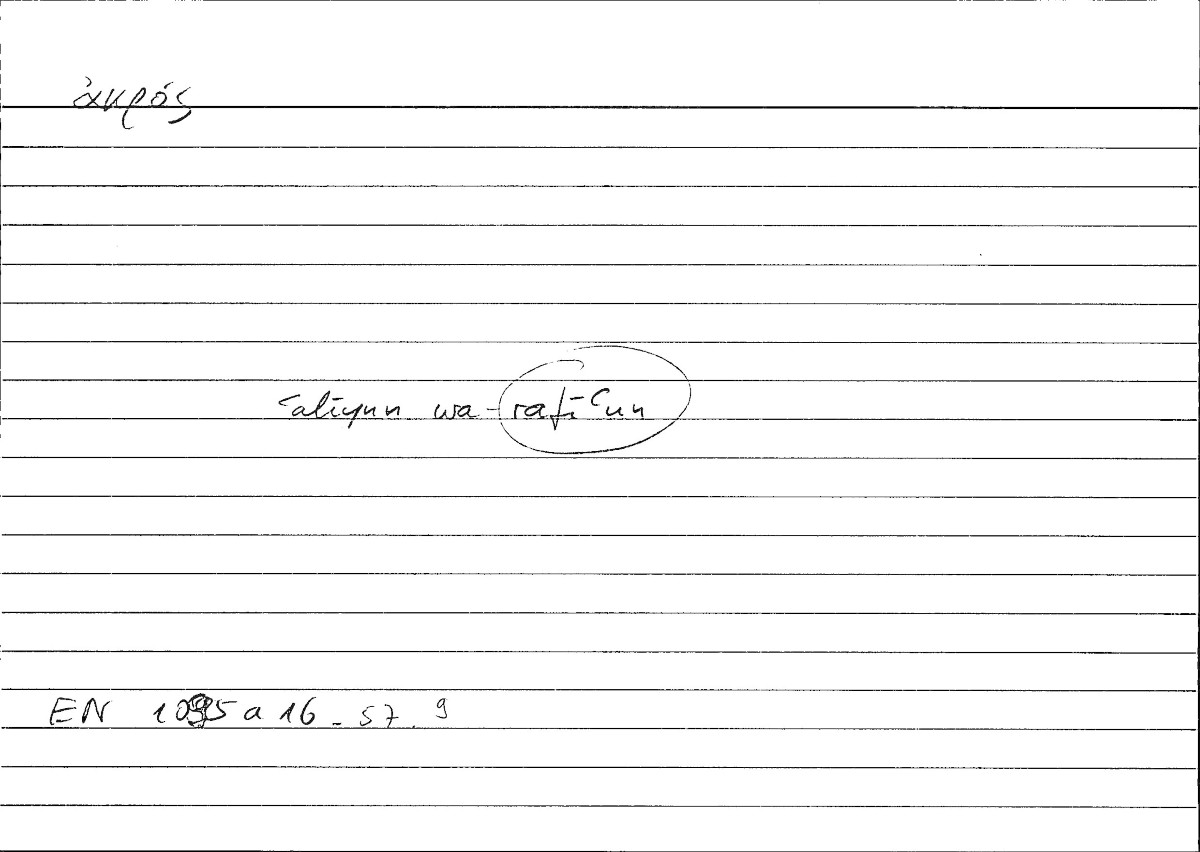 ἀκρός
ʿalīyun wa-rafīʿun
EN 1095 a 16 - 57.9